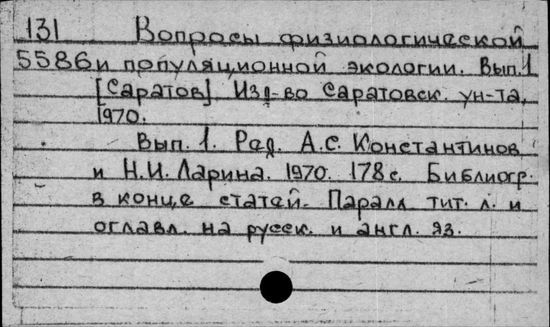 131 Вопросы физиологической
5586 и популяционной экологии. Вып.1
[Саратов] Изд-во Саратовск. ун-та,
1970.
Вып. 1. Ред. А.С. Константинов
и Н.И. Ларина. 1970. 178 с. Библиогр.
в конце статей. Паралл тит. л. и
оглавл. на русск. и англ. яз.